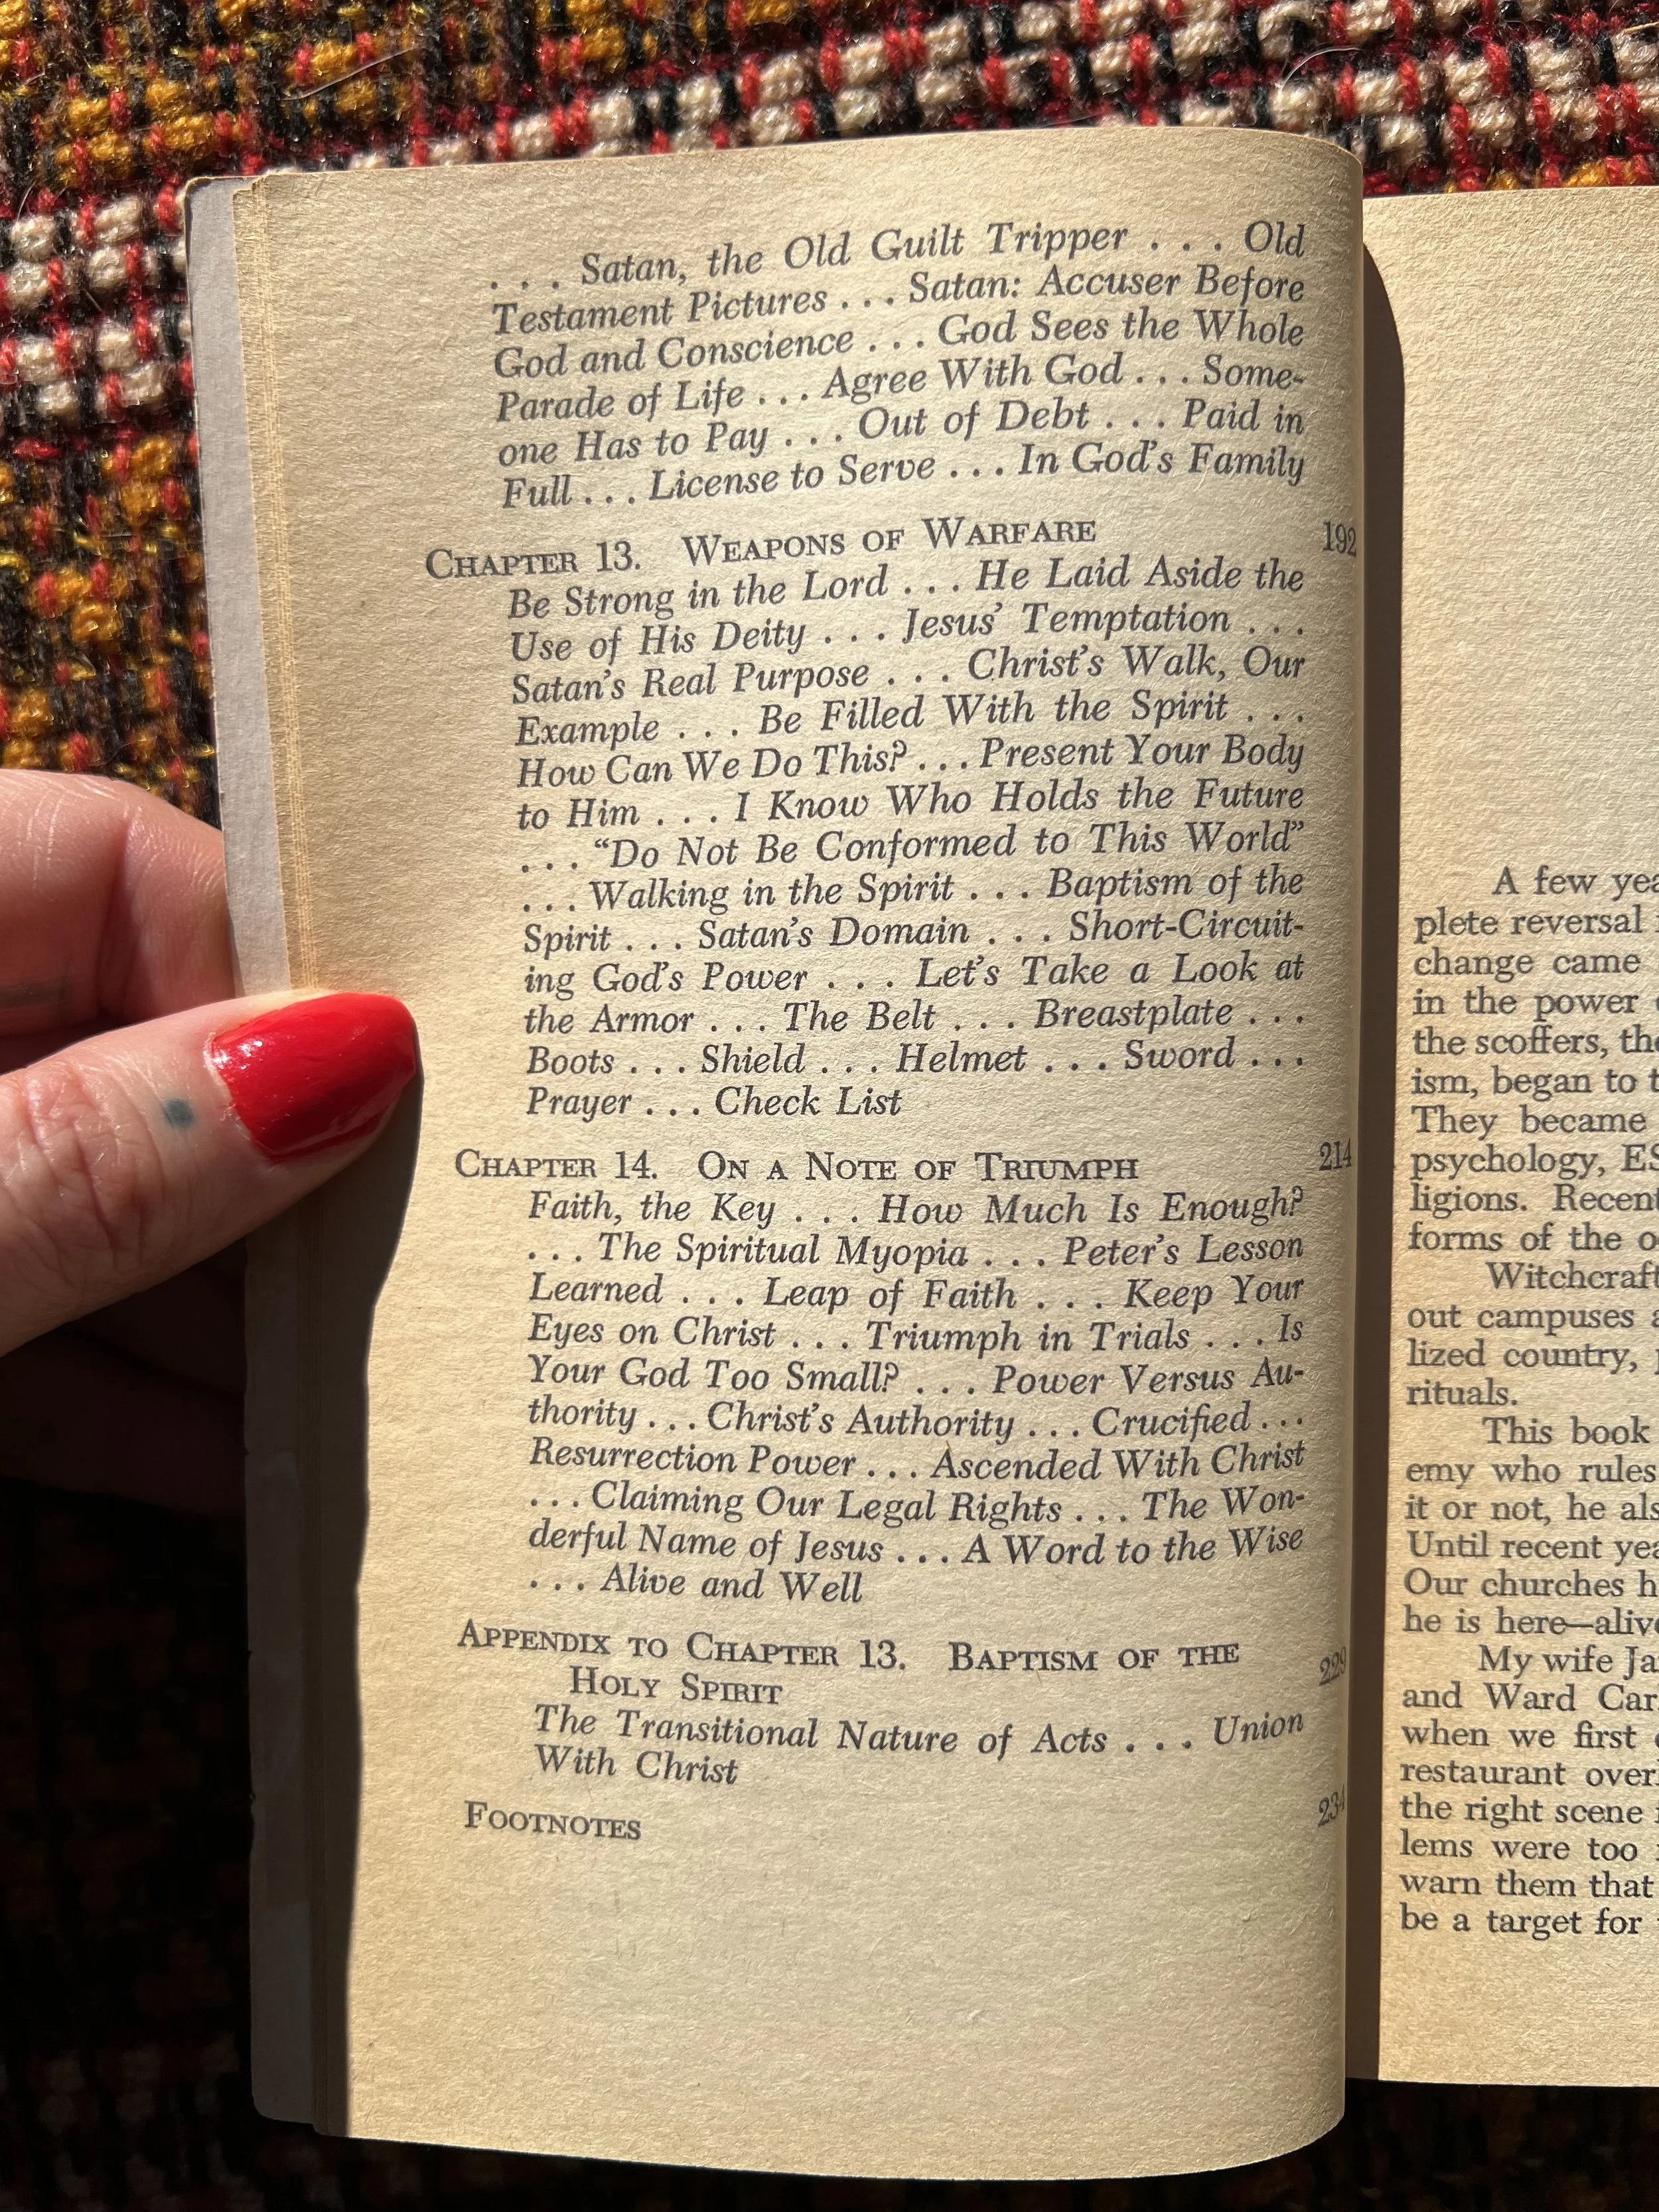 . . . Satan, the Old Guilt Tripper . . . Old
Testament Pictures . . . Satan: Accuser Before
God and Conscience . . . God Sees the Whole
Parade of Life . . . Agree With God . . . Some-
one Has to Pay . . . Out of Debt . . . Paid in
Full . . . License to Serve . . . In God's Family
CHAPTER 13. WEAPONS OF WARFARE 192
Be Strong in the Lord . . . He Laid Aside the
Use of His Deity . . . Jesus' Temptation . . .
Satan's Real Purpose . . . Christ's Walk, Our
Example . . . Be Filled With the Spirit . . .
How Can We Do This? . . . Present Your Body
to Him . . . I Know Who Holds the Future
. . . “Do Not Be Conformed to This World”
. . . Walking in the Spirit . . . Baptism of the
Spirit . . . Satan's Domain . . . Short-Circuit-
ing God's Power . . . Let's Take a Look at
the Armor . . . The Belt . . . Breastplate . . .
Boots . . . Shield . . . Helmet . . . Sword . . .
Prayer . . . Check List
CHAPTER 14. ON A NOTE OF TRIUMPH 214
Faith, the Key . . . How Much Is Enough?
. . . The Spiritual Myopia . . . Peter's Lesson
Learned . . . Leap of Faith . . . Keep Your
Eyes on Christ . . . Triumph in Trials . . . Is
Your God Too Small? . . . Power Versus Au-
thority . . . Christ's Authority . . . Crucified . . .
Resurrection Power . . . Ascended With Christ
. . . Claiming Our Legal Rights . . . The Won-
derful Name of Jesus . . . A Word to the Wise
. . . Alive and Well
APPENDIX TO CHAPTER 13. BAPTISM OF THE
HOLY SPIRIT 229
The Transitional Nature of Acts . . . Union
With Christ
FOOTNOTES 234
A few
plete reversal
change came
in the power
the scoffers,
ism, began to
They became
psychology,
ligions. Recent
forms of the
Witchcraft
out campuses
lized country,
rituals.
This book
emy who rules
it or not, he
Until recent
Our churches
he is here—
My wife
and Ward
when we first
restaurant
the right scene
lems were too
warn them that
be a target for